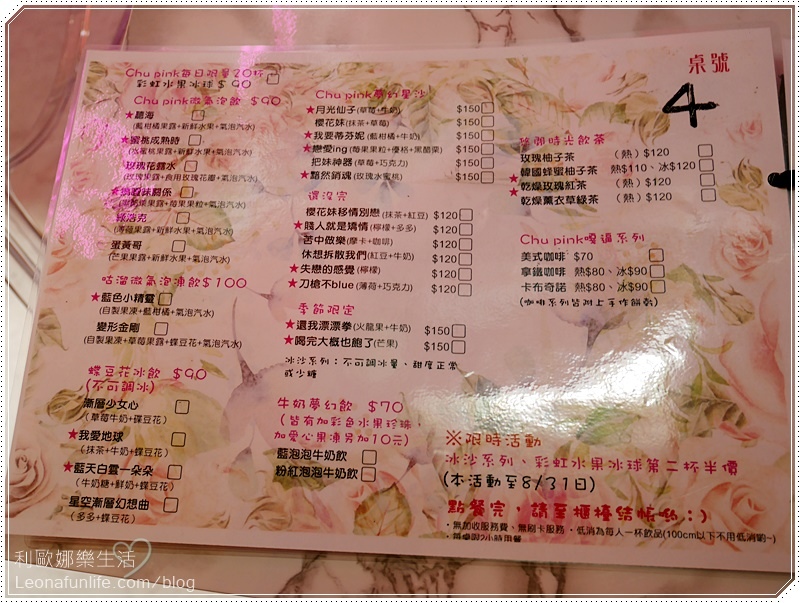 桌號
4
Chu pink每日限量20杯
彩虹水果冰球$90
Chu pink微氣泡飲 $90
★聽海
(藍柑橘果露+新鮮水果+氣泡汽水)
★蜜桃成熟時
(水蜜桃果露+新鮮水果+氣泡汽水)
玫瑰花露水
(玫瑰果露+食用玫瑰花瓣+氣泡汽水)
(薄荷果露+新鮮水果+氣泡汽水)
蛋黃哥
(芒果果露+新鮮水果+氣泡汽水)
咕溜微氣泡凍飲$100
★藍色小精靈
(自製果凍+藍柑橘+氣泡汽水)
變形金剛
(自製果凍+草莓果露+蝶豆花+氣泡汽水)
蝶豆花冰飲 $90
(不可調冰)
漸層少女心
(草莓牛奶+蝶豆花)
★我愛地球
(抹茶+牛奶+蝶豆花)
★藍天白雲一朵朵
(牛奶糖+鮮奶+蝶豆花)
星空漸層幻想曲
(多多+蝶豆花)
Chu pink夢幻星沙
★月光仙子(草莓+牛奶) $150
櫻花妹(抹茶+草莓) $150
★我要蒂芬妮(藍柑橘+牛奶) $150
★戀愛ing(莓果果粒+優格+黑醋栗) $150
把妹神器(草莓+巧克力) $150
★黯然銷魂(玫瑰水蜜桃) $150
還沒完
櫻花妹移情別戀(抹茶+紅豆) $120
★賤人就是矯情(檸檬+多多) $120
苦中做樂(摩卡+咖啡) $120
休想拆散我們(紅豆+牛奶) $120
★失戀的感覺(檸檬) $120
★刀槍不blue(薄荷+巧克力) $120
季節限定
★還我漂漂拳(火龍果+牛奶) $150
★喝完大概也飽了(芒果) $150
冰沙系列：不可調冰量、甜度正常
或少糖
牛奶夢幻飲 $70
(皆有加彩色水果珍珠，
加愛心果凍另加10元)
藍泡泡牛奶飲
粉紅泡泡牛奶飲
悠閒時光飲茶
玫瑰柚子茶 (熱)$120
韓國蜂蜜柚子茶 熱$110、冰$120
★乾燥玫瑰紅茶 (熱)$120
★乾燥薰衣草綠茶 (熱)$120
Chu pink嘎逼系列
美式咖啡 $70
拿鐵咖啡 熱$80、冰$90
卡布奇諾 熱$80、冰$90
(咖啡系列皆附上手作餅乾)
※限時活動
冰沙系列、彩虹水果冰球第二杯半價
(本活動至8/31日)
點餐完，請至櫃檯結帳喲：)
・無加收服務費、無刷卡服務・低消為每人一杯飲品(100cm以下不用低消喲~)
・每桌限2小時用餐
利歐娜樂生活
Leonafunlife.com/blog